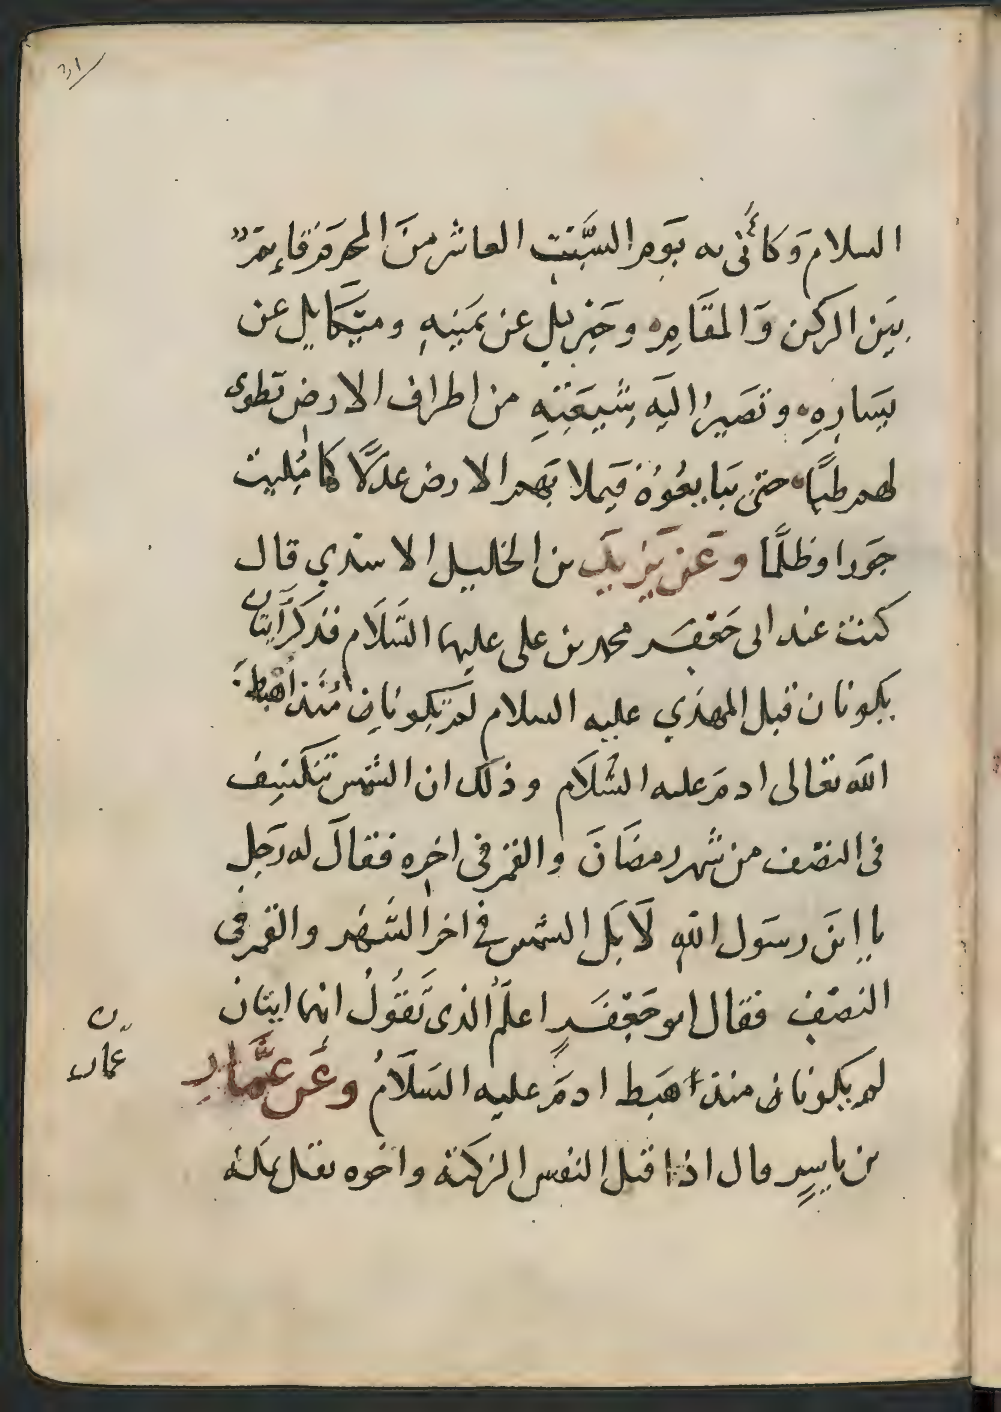 ٣١
السلامَ وكأنّى به يَوم السَّبْت العاشر منَ المحرمَ قايمَ
بيَن الركن وَالمقَامِ وجَبْريل عن يَمَينِهِ وميَكَايل عن
يسَارِهِ وتصَير اليَه شِيعَتِهِ من اطراف الارض تطوى
لهم طيًا حتى يبَايعُوهُ فيَملا بَهم الارض عدلًا كما مُلِيت
جَورا وظلًما وعَن يَزيَد بن الخليل الاسدي قال
كنت عند ابى جَعْفَر محمد بن على عليهما السَّلَام فذكر اَيتان
يكونان قبل المهدَي عليه السلام لم يَكونان مُنَذ اُهبطَ
الله تعالى ادمَ عليه السَّلَام وذلك ان الشمس تنكسِف
فى النصْف من شهر رمضَانَ والقمَر فى اخِره فقالَ له رَجل
يا ابنَ رسَول الله لَا بَل الشمس في اخر الشَهْر والقمر فى
النصْف فقال ابو جَعْفَرٍ اعلَم الذى تَقوُلُ انهما ايتان
لم يكونان منذ اهَبط ادمَ عليه السَلَامُ وعَن عمَّارِ
بن ياسِرٍ قال اذا قتل النفس الزكية واخوه يقتل بمكة
عمار